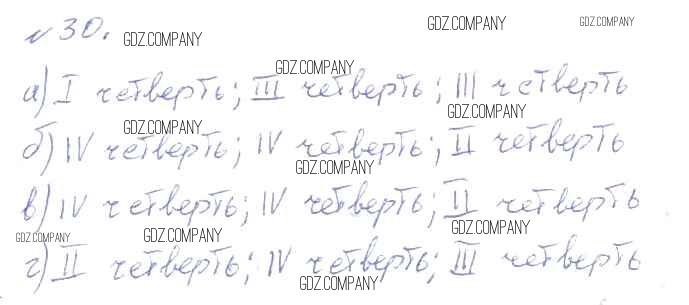 № 30. GDZ.COMPANY GDZ.COMPANY GDZ.COMPANY
GDZ.COMPANY
а) I четверть; III четверть; III четверть
GDZ.COMPANY GDZ.COMPANY
б) IV четверть; IV четверть; II четверть
GDZ.COMPANY
в) IV четверть; IV четверть; II четверть
GDZ.COMPANY GDZ.COMPANY GDZ.COMPANY
г) II четверть; IV четверть; III четверть
GDZ.COMPANY